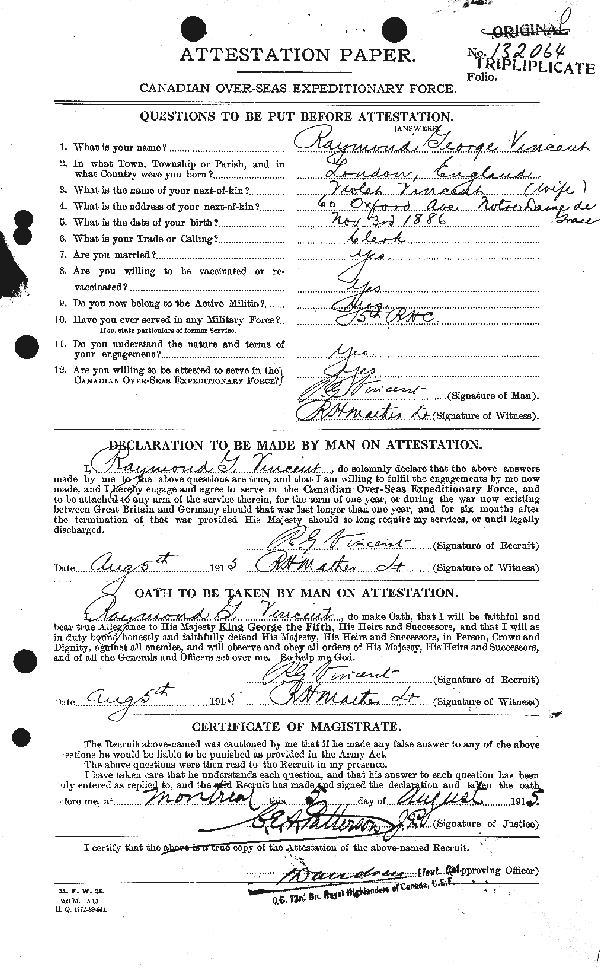 ORIGINAL
ATTESTATION PAPER.
No. 132064
TRIPLIPLICATE
Folio.
CANADIAN OVER-SEAS EXPEDITIONARY FORCE.
QUESTIONS TO BE PUT BEFORE ATTESTATION.
(ANSWERS)
1. What is your name? Raymond George Vincent
2. In what Town, Township or Parish, and in
what Country were you born? London, England
3. What is the name of your next-of-kin? Violet Vincent (wife)
4. What is the address of your next-of-kin? 60 Oxford Ave. Notre Dame de
Grace
5. What is the date of your birth? Nov 23 1886
6. What is your Trade or Calling? Clerk
7. Are you married? Yes
8. Are you willing to be vaccinated or re-
vaccinated? Yes
9. Do you now belong to the Active Militia?
10. Have you ever served in any Military Force? 5th RHC
If so, state particulars of former Service.
11. Do you understand the nature and terms of
your engagement? Yes
12. Are you willing to be attested to serve in the
CANADIAN OVER-SEAS EXPEDITIONARY FORCE? Yes
RG Vincent (Signature of Man).
(Signature of Witness).
DECLARATION TO BE MADE BY MAN ON ATTESTATION.
I, Raymond G. Vincent, do solemnly declare that the above answers
made by me to the above questions are true, and that I am willing to fulfil the engagements by me now
made, and I hereby engage and agree to serve in the Canadian Over-Seas Expeditionary Force, and
to be attached to any arm of the service therein, for the term of one year, or during the war now existing
between Great Britain and Germany should that war last longer than one year, and for six months after
the termination of that war provided His Majesty should so long require my services, or until legally
discharged.
RG Vincent (Signature of Recruit)
Date Aug 5th 1915 (Signature of Witness)
OATH TO BE TAKEN BY MAN ON ATTESTATION.
I, Raymond G. Vincent, do make Oath, that I will be faithful and
bear true Allegiance to His Majesty King George the Fifth, His Heirs and Successors, and that I will as
in duty bound honestly and faithfully defend His Majesty, His Heirs and Successors, in Person, Crown and
Dignity, against all enemies, and will observe and obey all orders of His Majesty, His Heirs and Successors,
and of all the Generals and Officers set over me. So help me God.
RG Vincent (Signature of Recruit)
Date Aug 5th 1915 (Signature of Witness)
CERTIFICATE OF MAGISTRATE.
The Recruit above-named was cautioned by me that if he made any false answer to any of the above
questions he would be liable to be punished as provided in the Army Act.
The above questions were then read to the Recruit in my presence.
I have taken care that he understands each question, and that his answer to each question has been
duly entered as replied to, and the said Recruit has made and signed the declaration and taken the oath
before me, at Montreal this 5 day of August 1915
C.E.A. Patterson J.P. (Signature of Justice)
I certify that the above is a true copy of the Attestation of the above-named Recruit.
Lieut Col (Approving Officer)
O.C. 73rd Bn. Royal Highlanders of Canada, C.E.F.
M. F. W. 23.